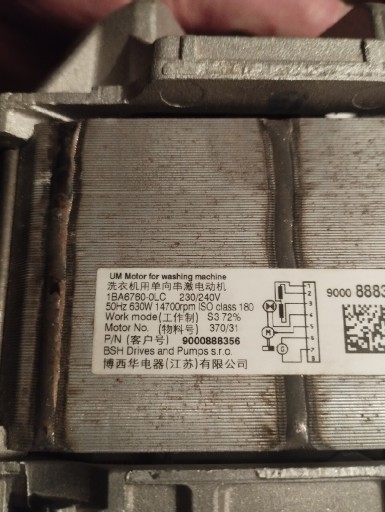 UM Motor for washing machine
洗衣机用单向串激电动机
1BA6760-0LC 230/240V
50Hz 630W 14700rpm ISO class 180
Work mode(工作制) S3 72%
Motor No. (物料号) 370/31
P/N (客户号) 9000888356
BSH Drives and Pumps s.r.o.
博西华电器(江苏)有限公司
1
2
3
4
5
6
7
8
M
G
9000 8883